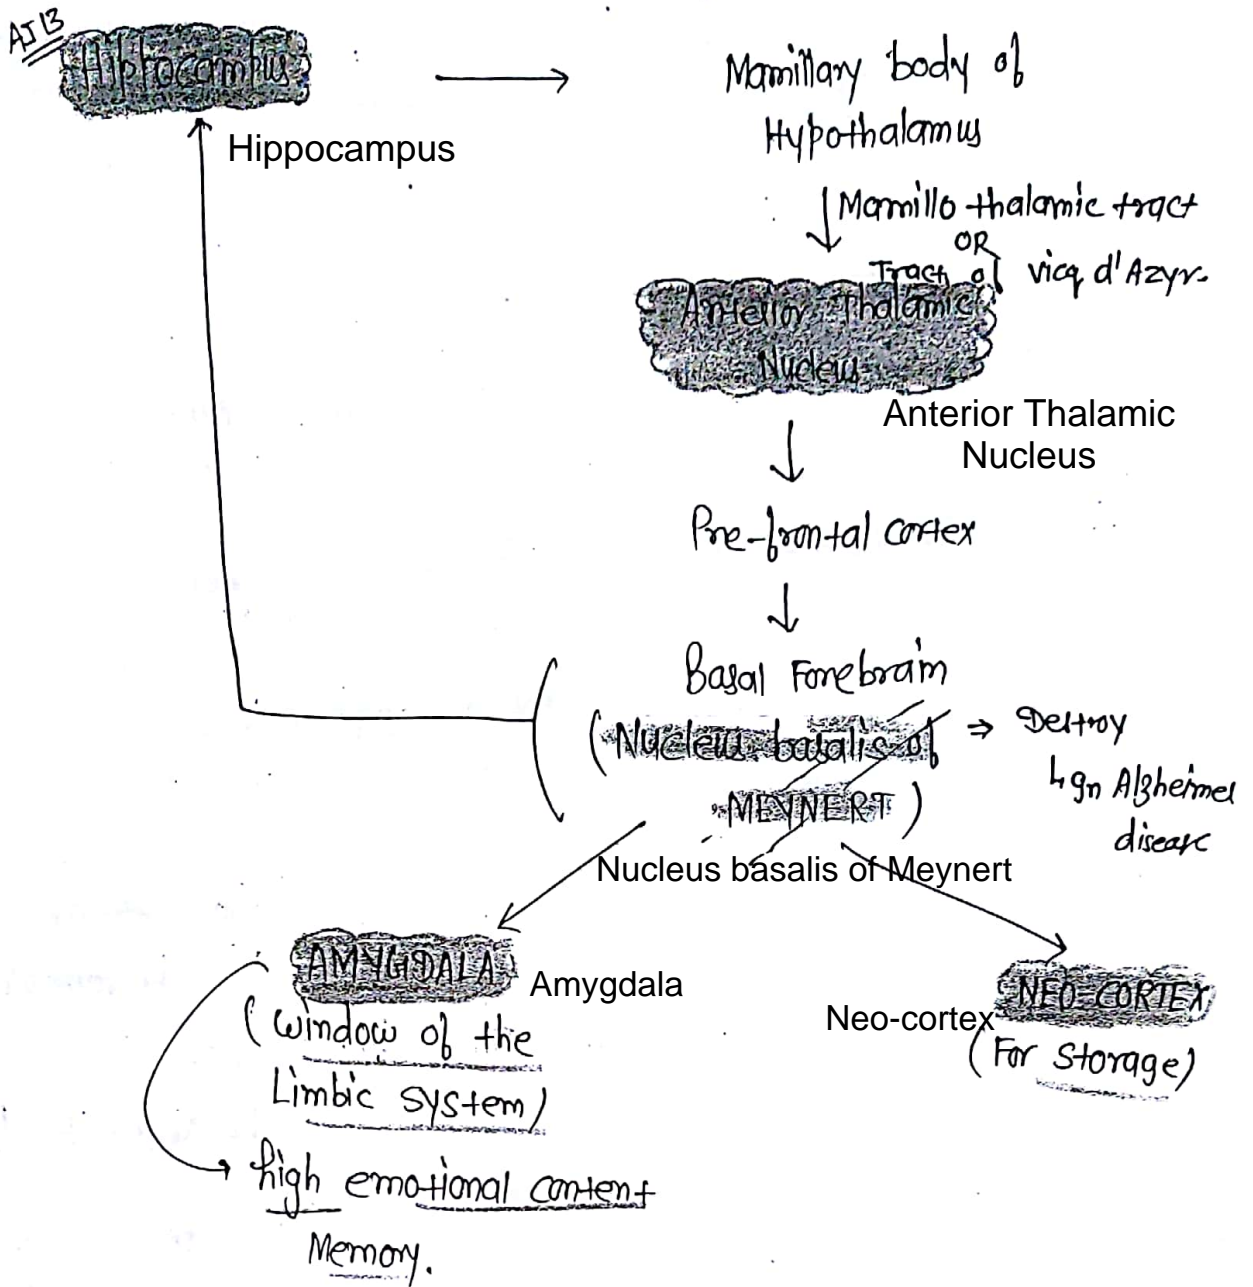 AJ 13
Hippocampus
Hippocampus
Mamillary body of
Hypothalamus
Mamillo thalamic tract
OR
Tract of vicq d'Azyr.
Anterior Thalamic
Nucleus
Anterior Thalamic
Nucleus
Pre-frontal cortex
Basal Forebrain
(Nucleus basalis of
MEYNERT)
⇒ Destroy
↳ In Alzheimer
disease
Nucleus basalis of Meynert
AMYGDALA
Amygdala
(window of the
Limbic system)
high emotional content
Memory.
NEO-CORTEX
Neo-cortex
(For storage)